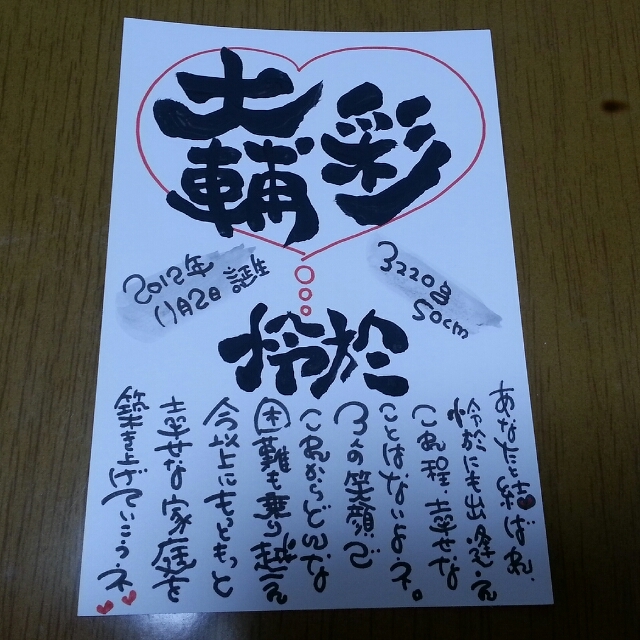 大輔
彩
2012年
11月2日 誕生
3220g
50cm
怜於
あなたと結ばれ、
怜於にも出逢え
これ程、幸せな
ことはないよネ。
3人の笑顔で
これからどんな
困難も乗り越え
今以上にもっともっと
幸せな家庭を
築き上げていこうネ